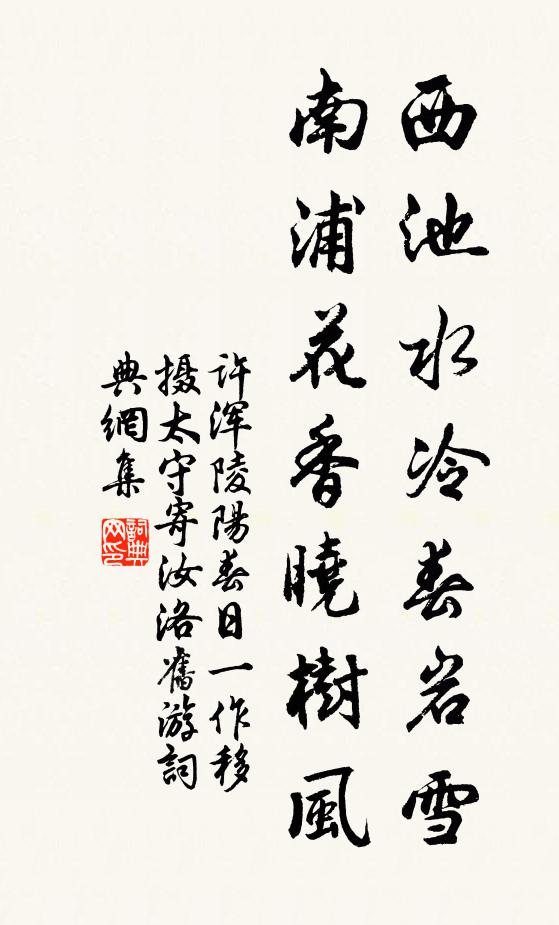 西池水冷春岩雪
南浦花香曉樹風
许浑陵陽春日一作移
摄太守寄汝洛舊游詞
典網集
詞典網印